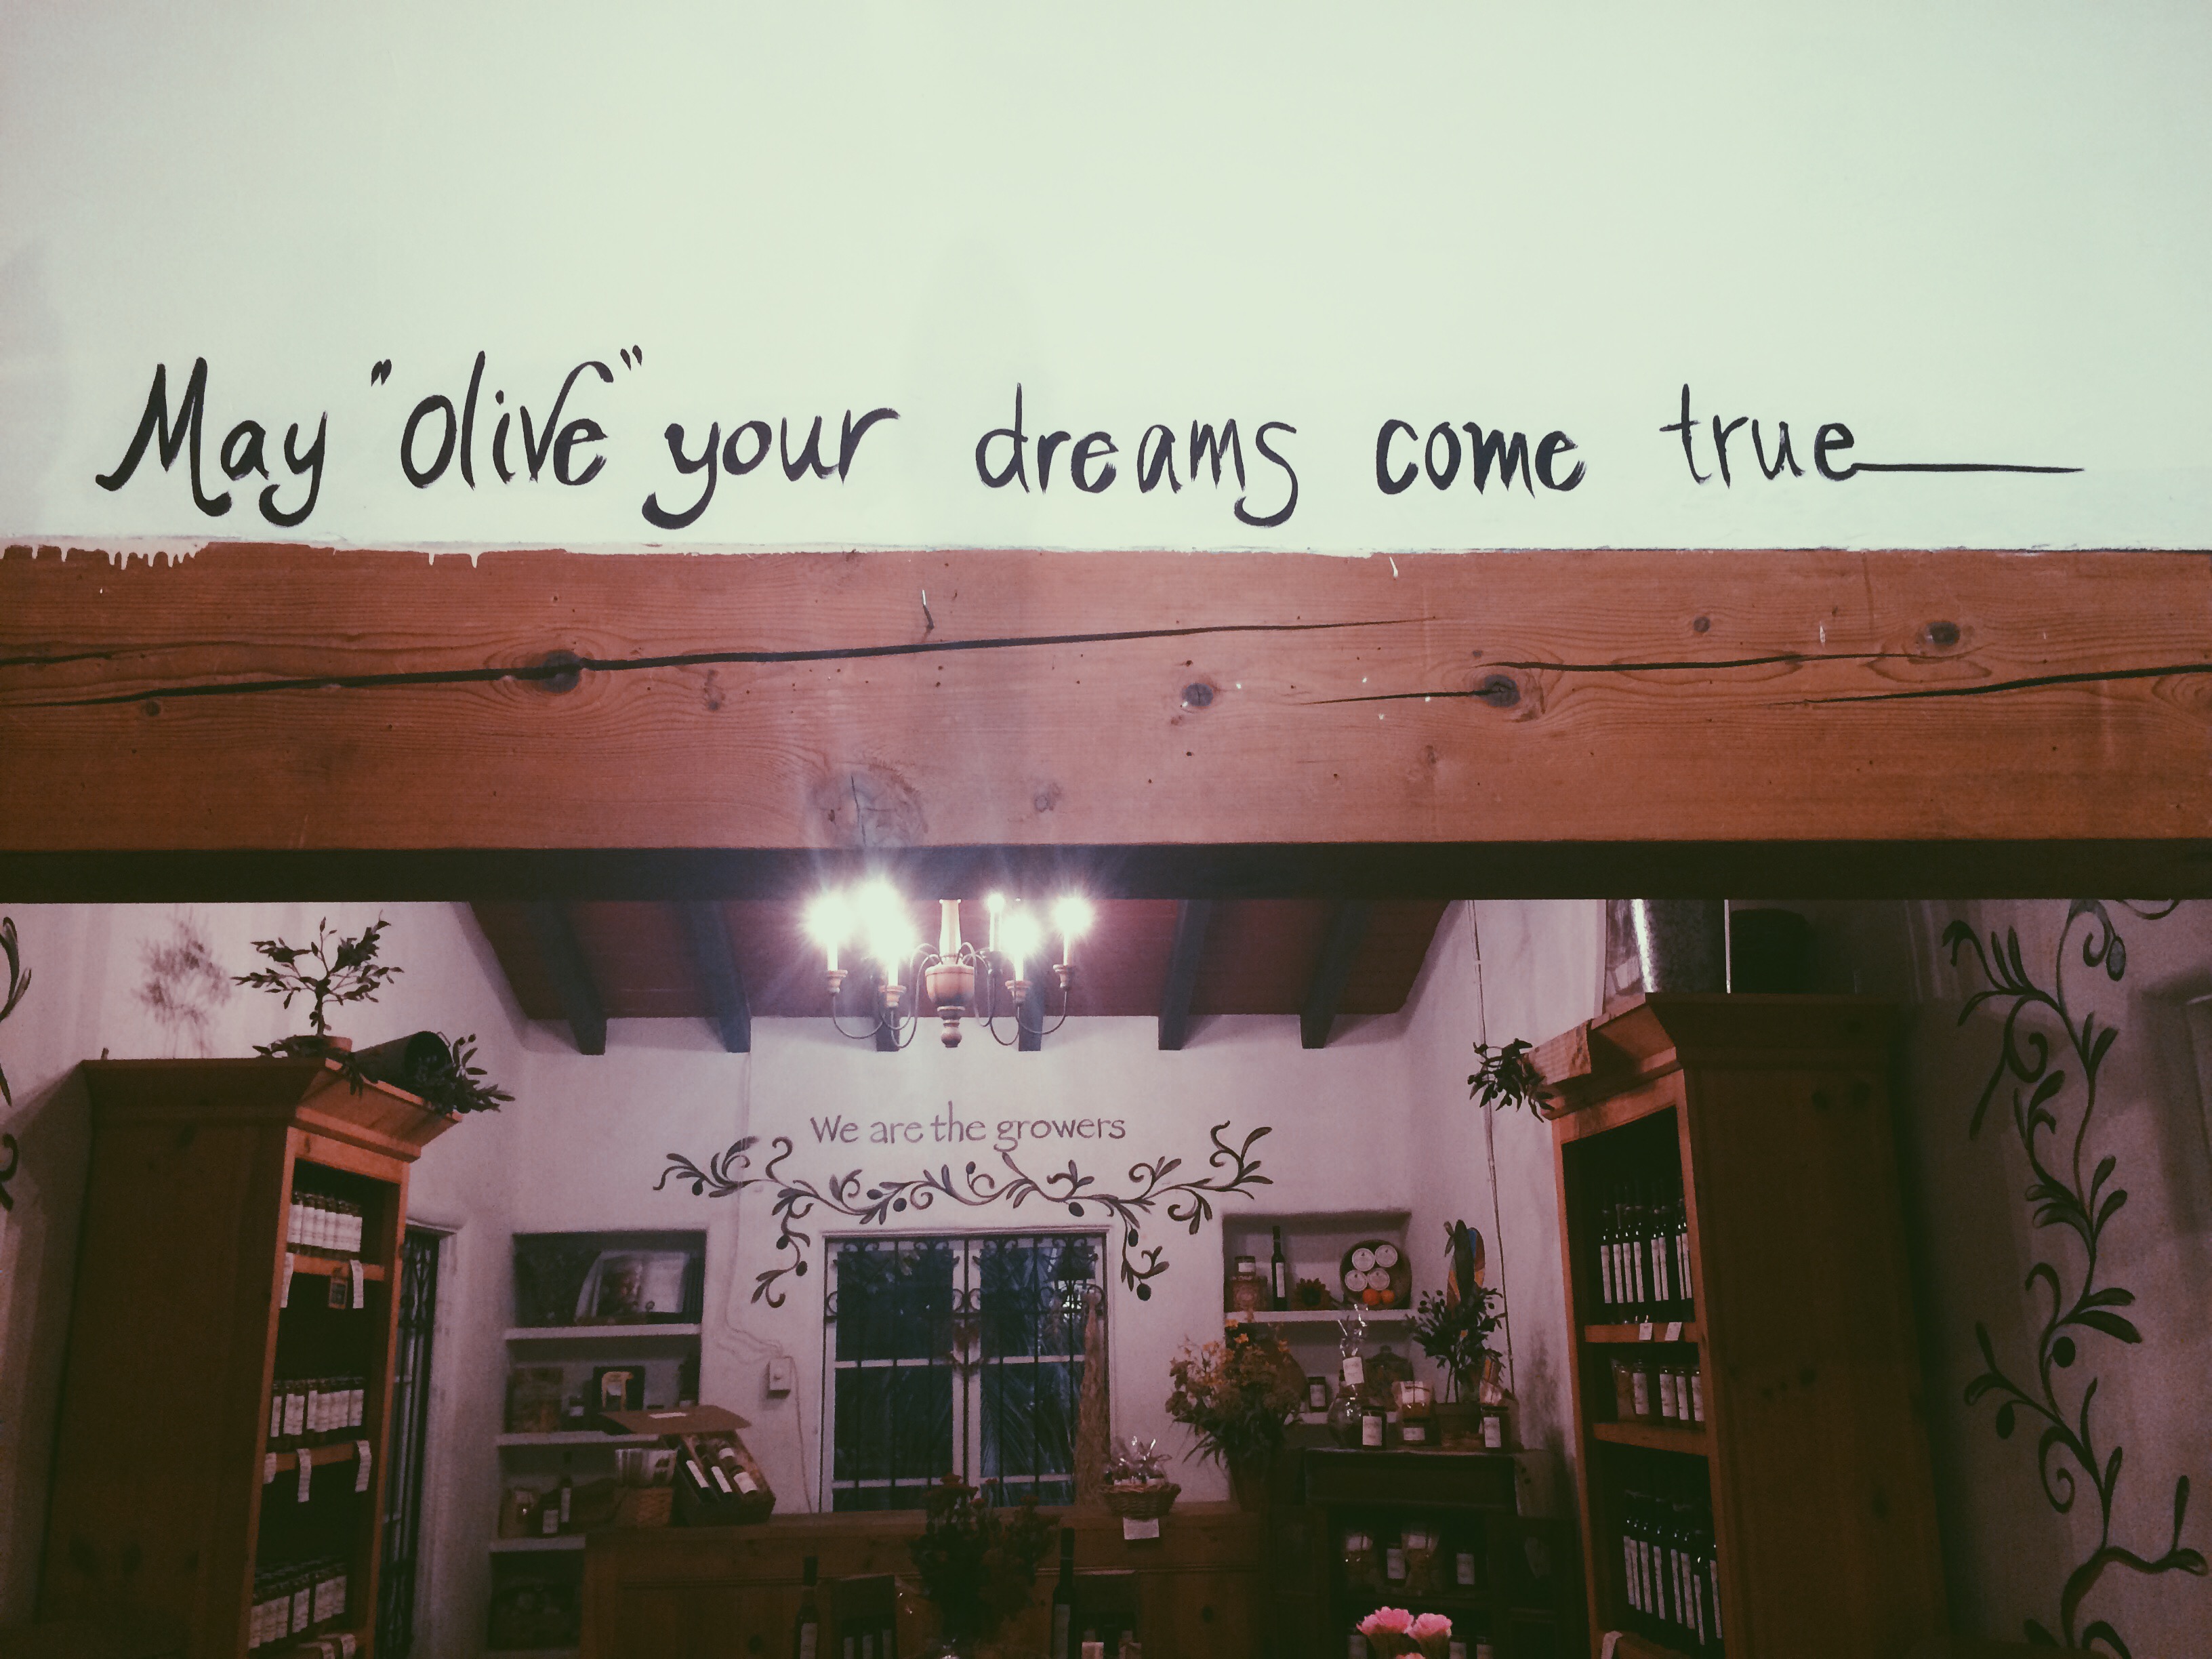 May "olive" your dreams come true
We are the growers